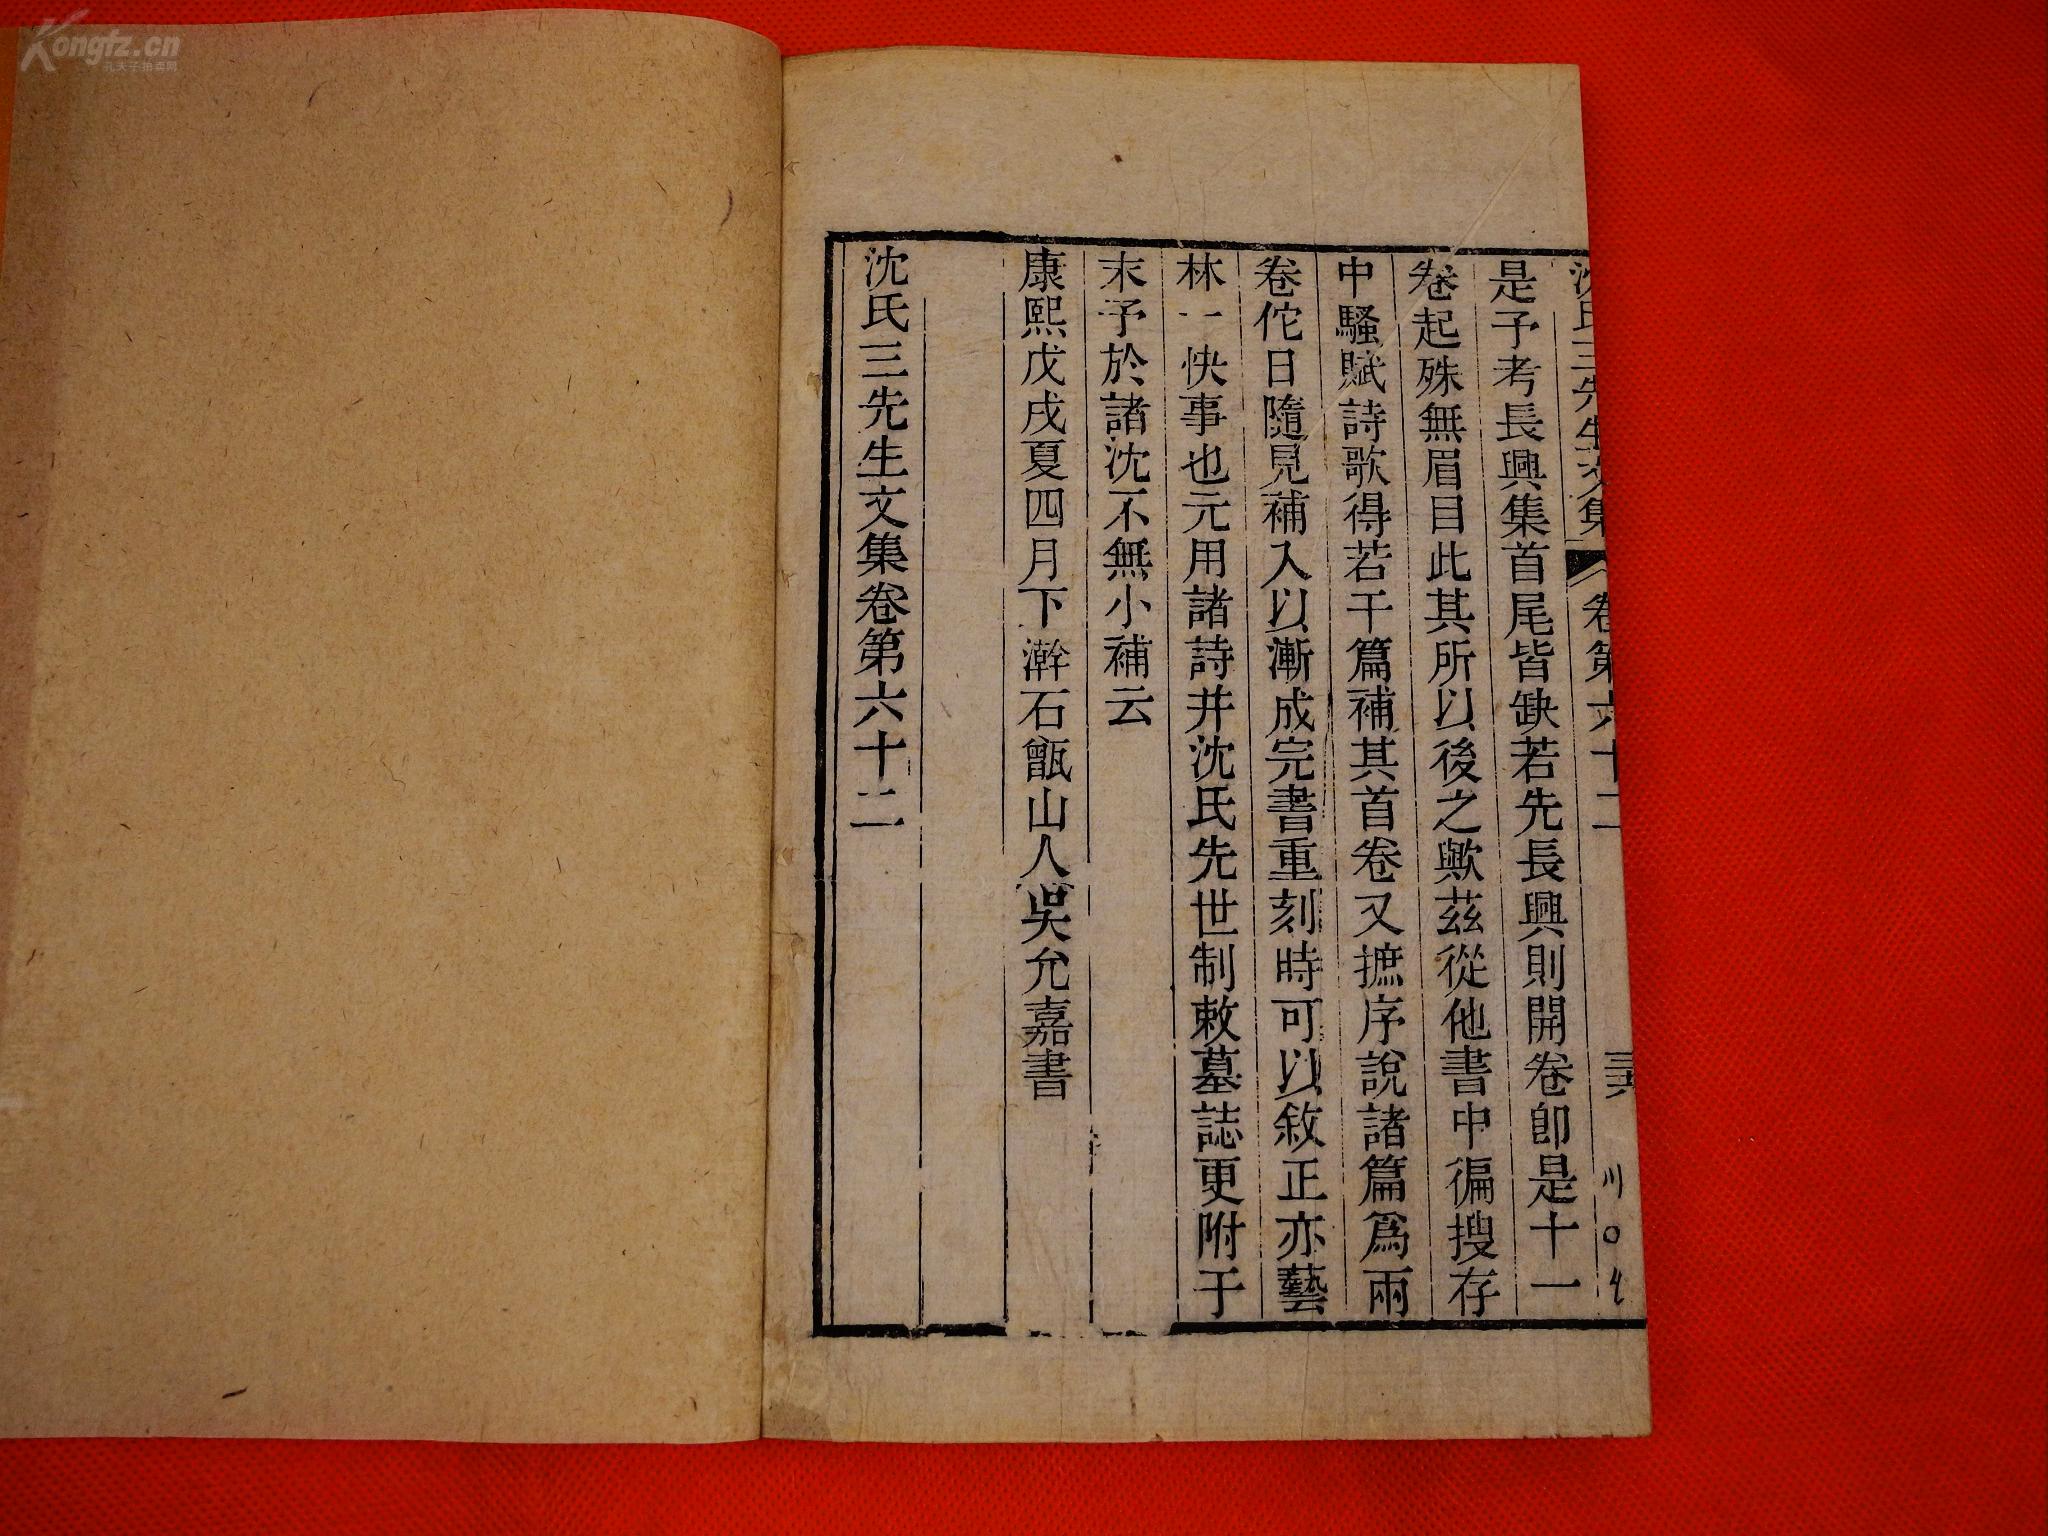 沈氏三先生文集 卷第六十二
是予考長興集首尾皆缺若先長興則開卷卽是十一
卷起殊無眉目此其所以後之歟茲從他書中徧搜存
中騷賦詩歌得若干篇補其首卷又摭序說諸篇爲兩
卷佗日隨見補入以漸成完書重刻時可以敘正亦藝
林一快事也元用諸詩幷沈氏先世制敕墓誌更附于
末予於諸沈不無小補云
康熙戊戌夏四月下澣石甑山人吳允嘉書
沈氏三先生文集卷第六十二
Kongfz.cn
孔夫子拍卖网